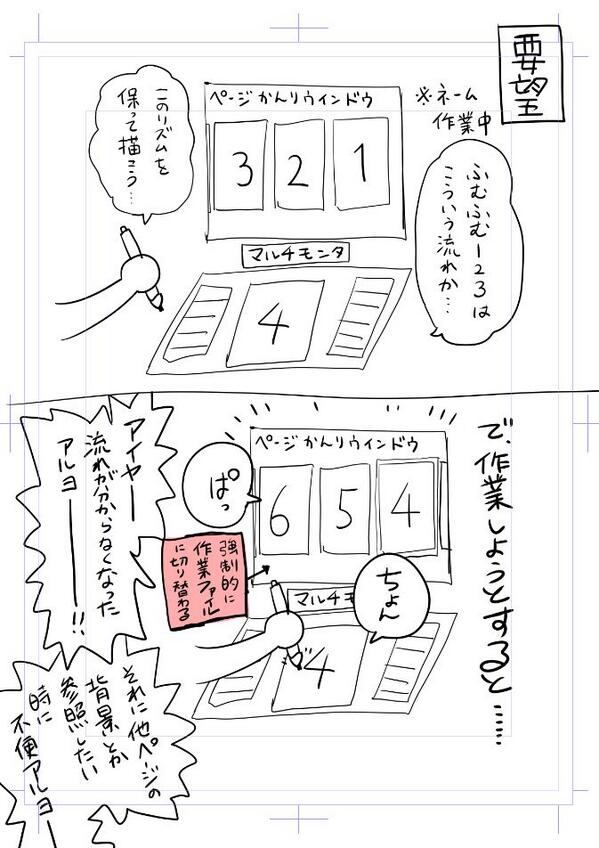 要望
※ネーム
作業中
ページかんりウインドウ
3 2 1
ふむふむー123は
こういう流れか…
このリズムを
保って描こう…
マルチモンタ
4
で、作業しようとすると……
ページかんりウインドウ
6 5 4
ぱっ
ちょん
強制的に
作業ファイル
に切り替わる
マルチモ
4
アイヤー
流れが分からなくなった
アルヨー!!
それに他ページの
背景とか
参照したい
時に
不便アルヨー